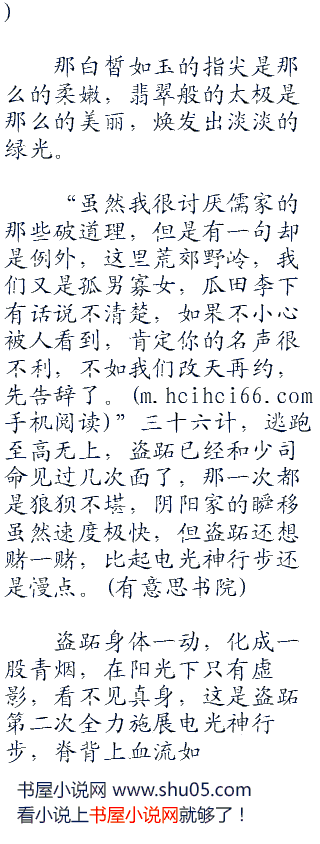 )
那白皙如玉的指尖是那
么的柔嫩，翡翠般的太极是
那么的美丽，焕发出淡淡的
绿光。
“虽然我很讨厌儒家的
那些破道理，但是有一句却
是例外，这里荒郊野岭，我
们又是孤男寡女，瓜田李下
有话说不清楚，如果不小心
被人看到，肯定你的名声很
不利，不如我们改天再约，
先告辞了。(m.hcihci66.com
手机阅读)”三十六计，逃跑
至高无上，盗跖已经和少司
命见过几次面了，那一次都
是狼狈不堪，阴阳家的瞬移
虽然速度极快，但盗跖还想
赌一赌，比起电光神行步还
是慢点。(有意思书院)
盗跖身体一动，化成一
股青烟，在阳光下只有虚
影，看不见真身，这是盗跖
第二次全力施展电光神行
步，脊背上血流如
书屋小说网 www.shu05.com
看小说上书屋小说网就够了！